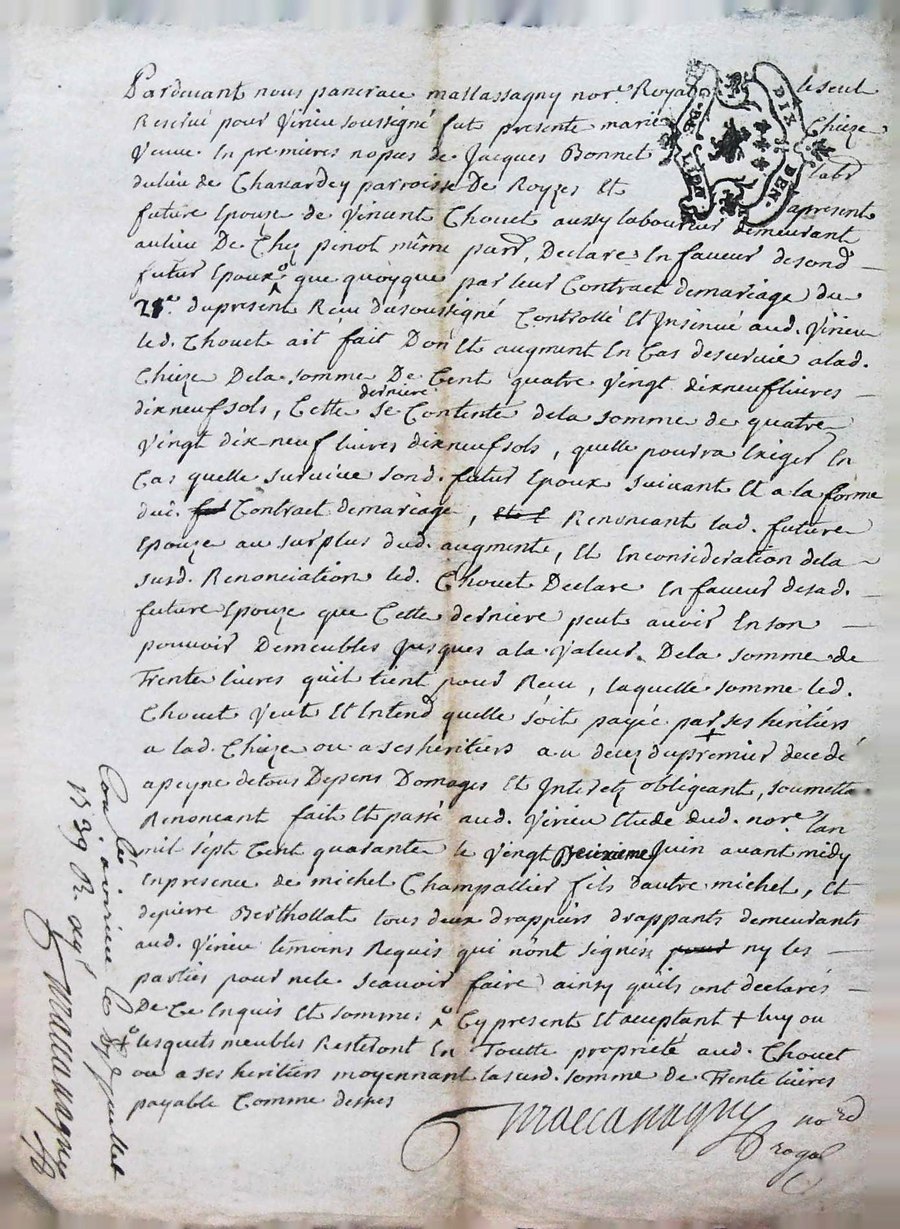 Pardevant nous pancrace mallassagny nore. Royal le seul
Reservé pour Virieu soussigné fut presente marie Chieze
Veuve En premieres nopces de Jacques Bonnet labr
du lieu de Chavardey parroisse De Royzes Et apresent
future Epouze de Vincent Chouet aussy laboureur demeurant
au lieu De Chez penot même parr, Declare En faveur de sond
futur Epoux que quoyque par leur Contract de mariage du
21e. du present Receu du soussigné Controllé Et Insinué aud. Virieu
led. Chouet ait fait Don Et augment En Cas de survie a lad.
Chieze De la somme De Cent quatre Vingt dixneuf livres
dixneuf sols, Cette derniere se Contente de la somme de quatre
Vingt dix neuf livres dixneuf sols, quelle pourra Exiger En
Cas quelle survive sond. futur Epoux suivant Et a la forme
dud. Contract de mariage, Renoncant lad. future
Epouze au surplus dud. augment, Et En consideration de la
susd. Renonciation led. Chouet Declare En faveur de sad.
future Epouze que Cette derniere peut avoir En son
pouvoir De meubles Jusques a la Valeur De la somme de
Trente livres quil tient pour Receu, laquelle somme led.
Chouet Veut Et Entend quelle soit payée par ses heritiers
a lad. Chieze ou a ses heritiers au decez du premier decedé
a peyne de tous Depens Domages Et Interetz obligeant, soumetta
Renoncant fait Et passé aud. Virieu Etude dud. nore. lan
mil sept Cent quarante le Vingt Deuxieme Juin avant midy
En presence de michel Champallier fils dautre michel, Et
de pierre Berthollat tous deux drappiers drappants demeurants
aud. Virieu temoins Requis qui nont signés ny les
parties pour ne le scavoir faire ainsy quils ont declarés
De Ce Enquis Et sommes Cy present Et acceptant + luy ou
lesquels meubles Resteront En Toutte propriété aud. Chouet
ou a ses heritiers moyennant la susd. somme de Trente livres
payable Comme dessus
nore
royal
G. DE LION
DIX DEN.
a virieu le
Juillet